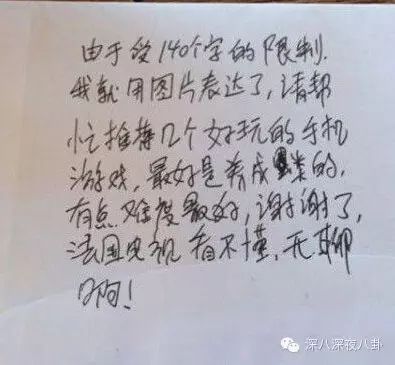 由于受140个字的限制.
我就用图片表达了,请帮
忙推荐几个好玩的手机
游戏,最好是养成类的,
有点难度最好,谢谢了,
法国电视看不懂,无聊
啊!
深八深夜八卦